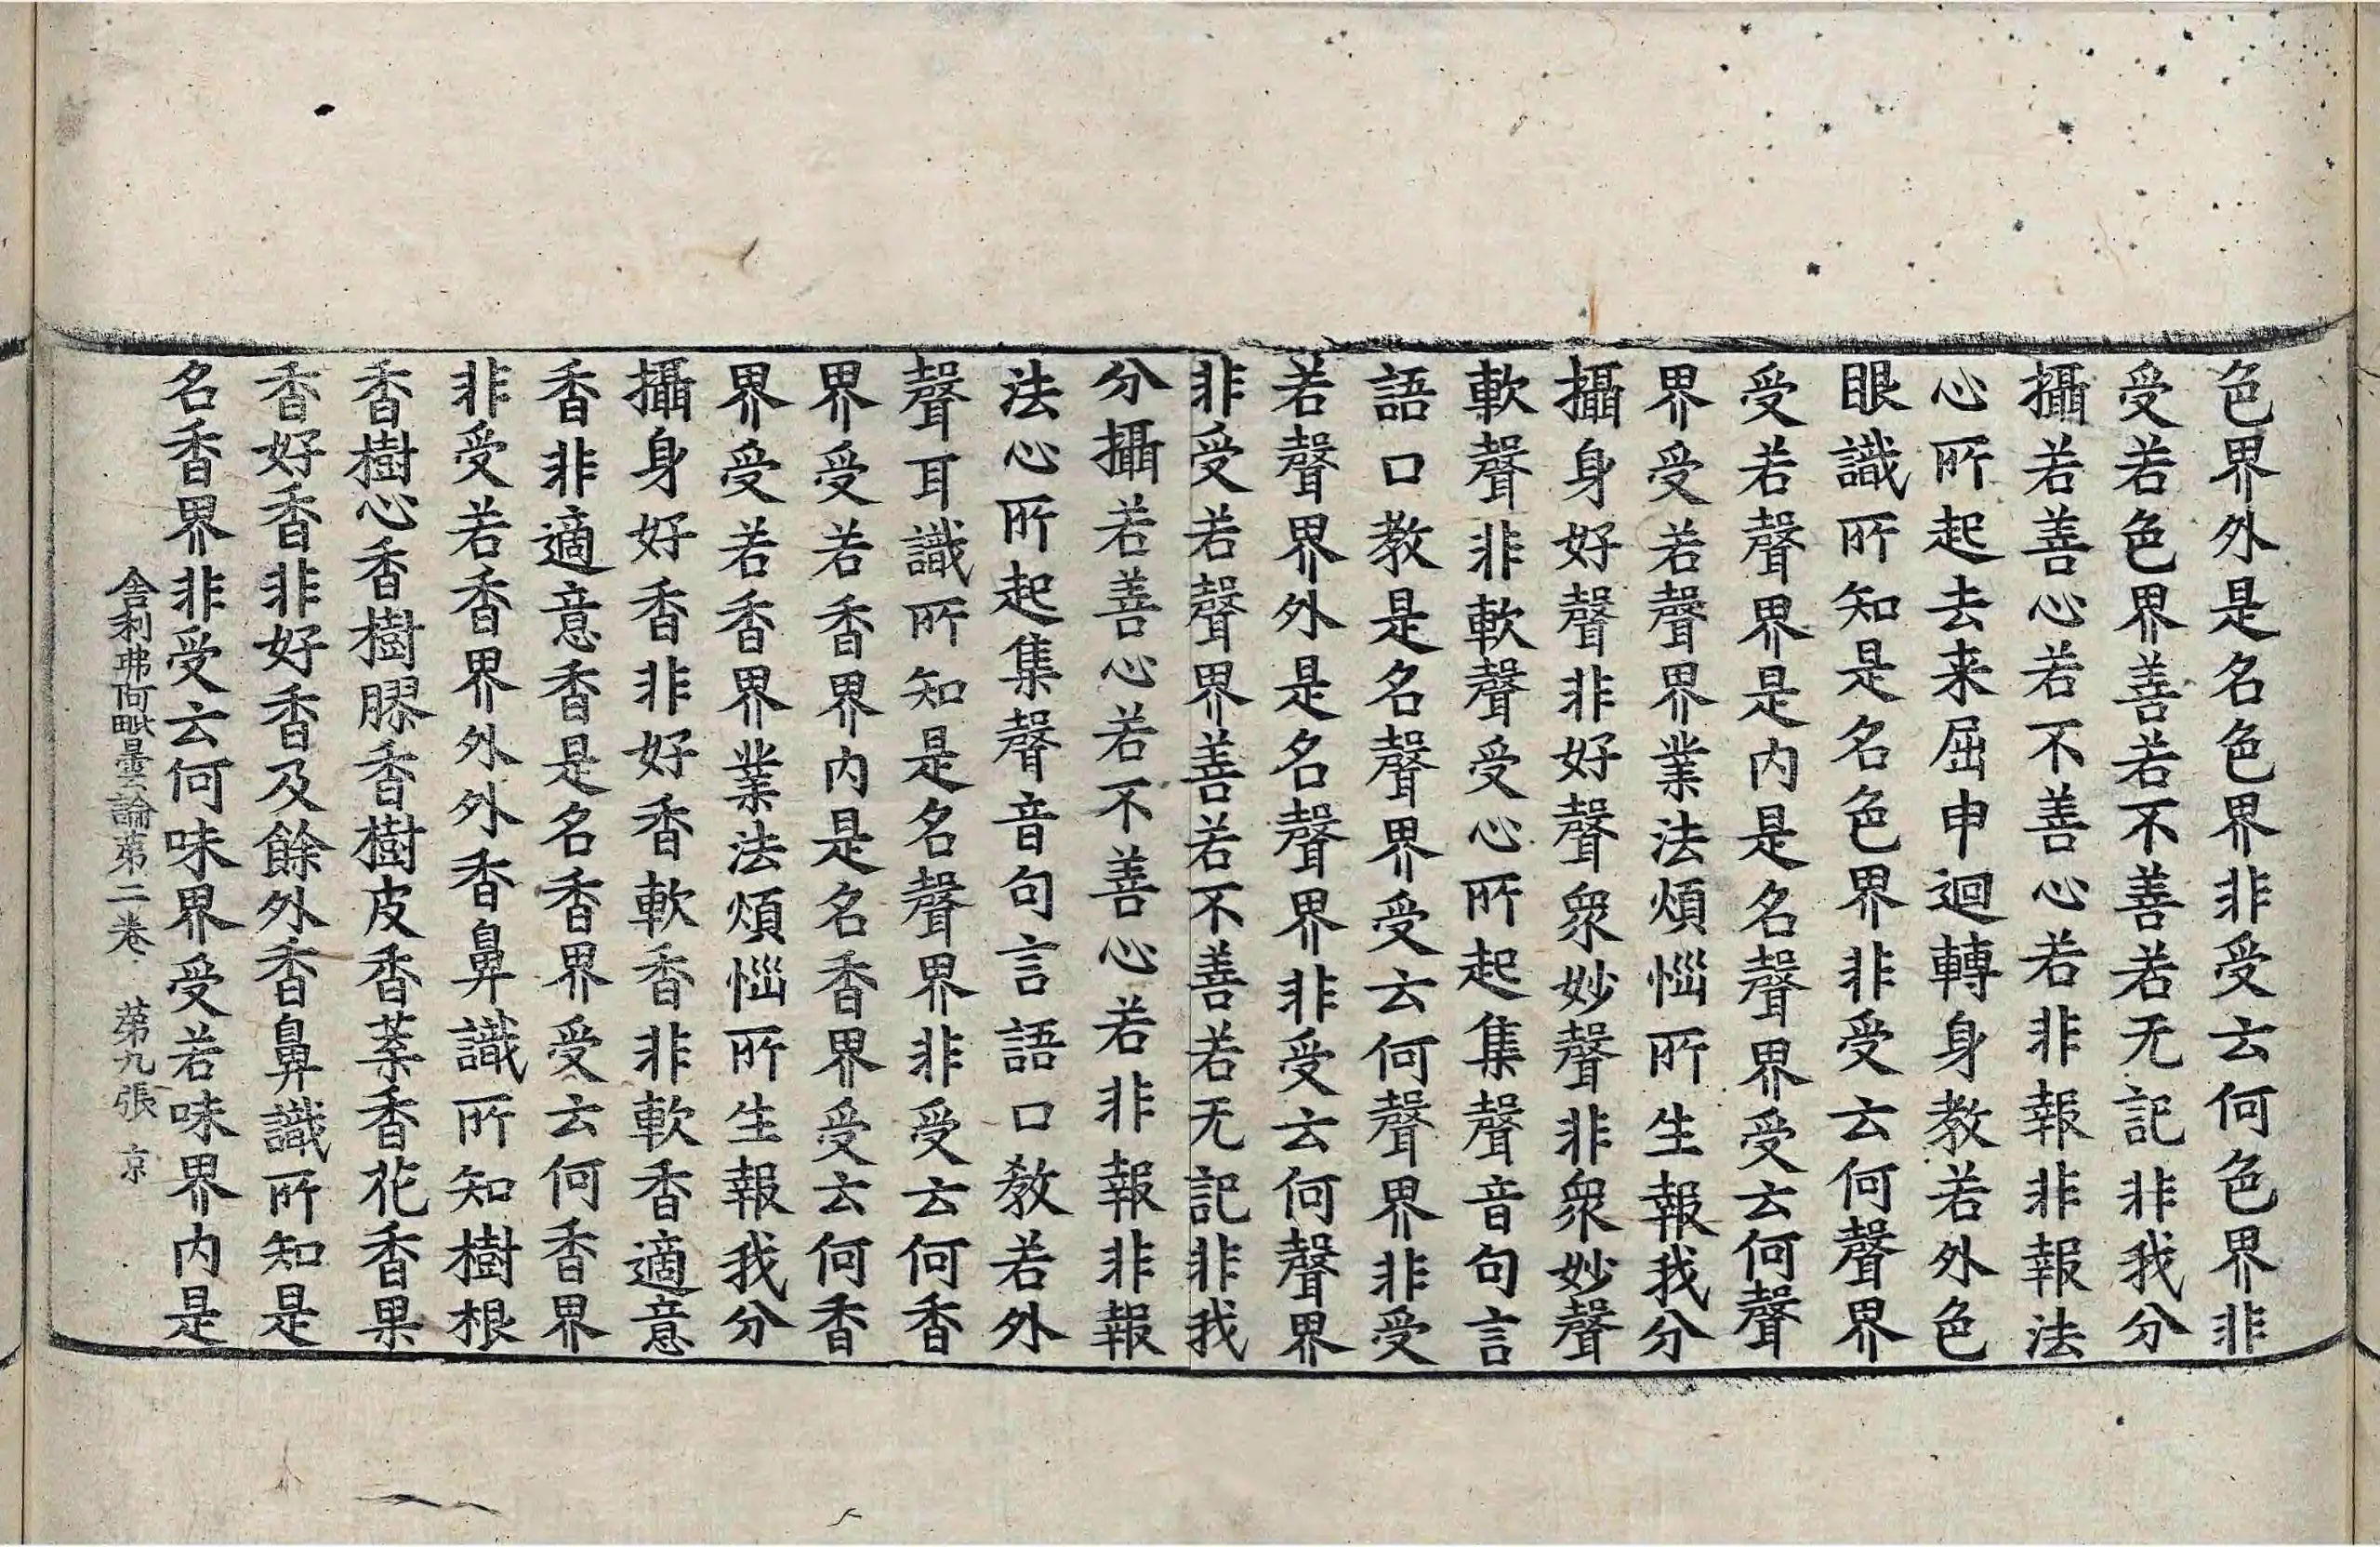 色界外是名色界非受云何色界非
受若色界善若不善若无記非我分
攝若善心若不善心若非報非報法
心所起去来屈申迴轉身教若外色
眼識所知是名色界非受云何聲界
受若聲界是内是名聲界受云何聲
界受若聲界業法煩惱所生報我分
攝身好聲非好聲衆妙聲非衆妙聲
軟聲非軟聲受心所起集聲音句言
語口教是名聲界受云何聲界非受
若聲界外是名聲界非受云何聲界
非受若聲界善若不善若无記非我
分攝若善心若不善心若非報非報
法心所起集聲音句言語口教若外
聲耳識所知是名聲界非受云何香
界受若香界内是名香界受云何香
界受若香界業法煩惱所生報我分
攝身好香非好香軟香非軟香適意
香非適意香是名香界受云何香界
非受若香界外外香鼻識所知樹根
香樹心香樹膠香樹皮香葉香花香果
香好香非好香及餘外香鼻識所知是
名香界非受云何味界受若味界内是
舍利弗阿毗曇論第二卷 第九張 京